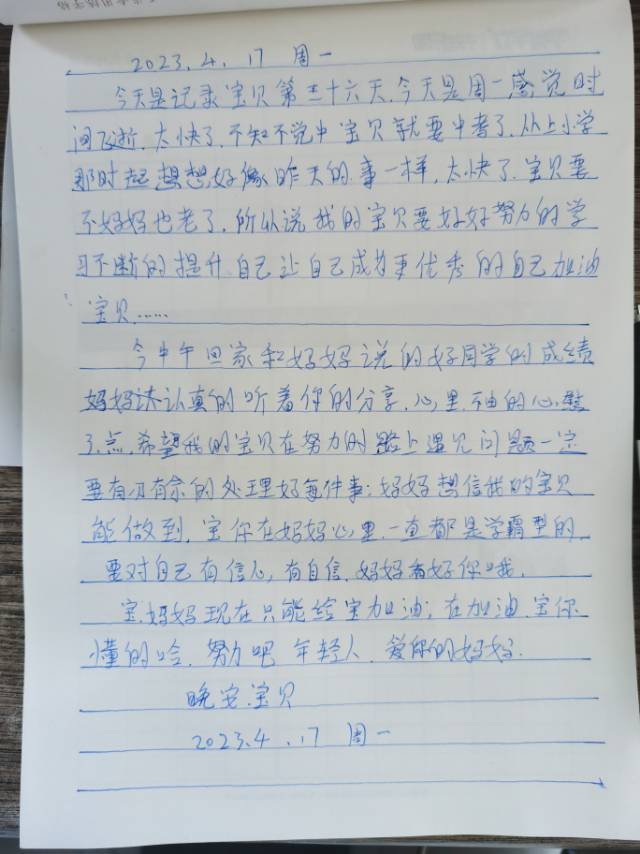 2023.4.17 周一
今天是记录宝贝第三十六天.今天是周一感觉时
间飞逝.太快了.不知不觉中宝贝就要中考了.从上小学
那时起想想好像昨天的事一样,太快了.宝贝要
不妈妈也老了.所以说我的宝贝要好好努力的学
习不断的提升自己让自己成为更优秀的自己加油
宝贝……
今中午回家和妈妈说的好同学的成绩
妈妈认真的听着你的分享.心里 的心慰
了.点.希望我的宝贝在努力的路上遇见问题一定
要有刃有余的处理好每件事;妈妈想信我的宝贝
能做到.宝你在妈妈心里.一直都是学霸型的
要对自己有信心,有自信.妈妈看好你哦.
宝.妈妈现在只能给宝加油;在加油.宝你
懂的哈.努力吧 年轻人.爱你的妈妈.
晚安.宝贝
2023.4.17 周一